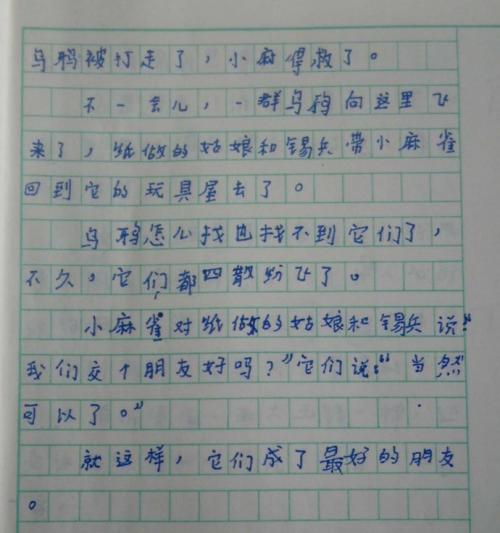 乌鸦被打走了，小麻得救了。
不一会儿，一群乌鸦向这里飞
来了，纸做的姑娘和锡兵带小麻雀
回到它的玩具屋去了。
乌鸦怎么找也找不到它们了，
不久，它们都四散纷飞了。
小麻雀对纸做的姑娘和锡兵说：“
我们交个朋友好吗？”它们说：“当然
可以了。”
就这样，它们成了最好的朋友
。